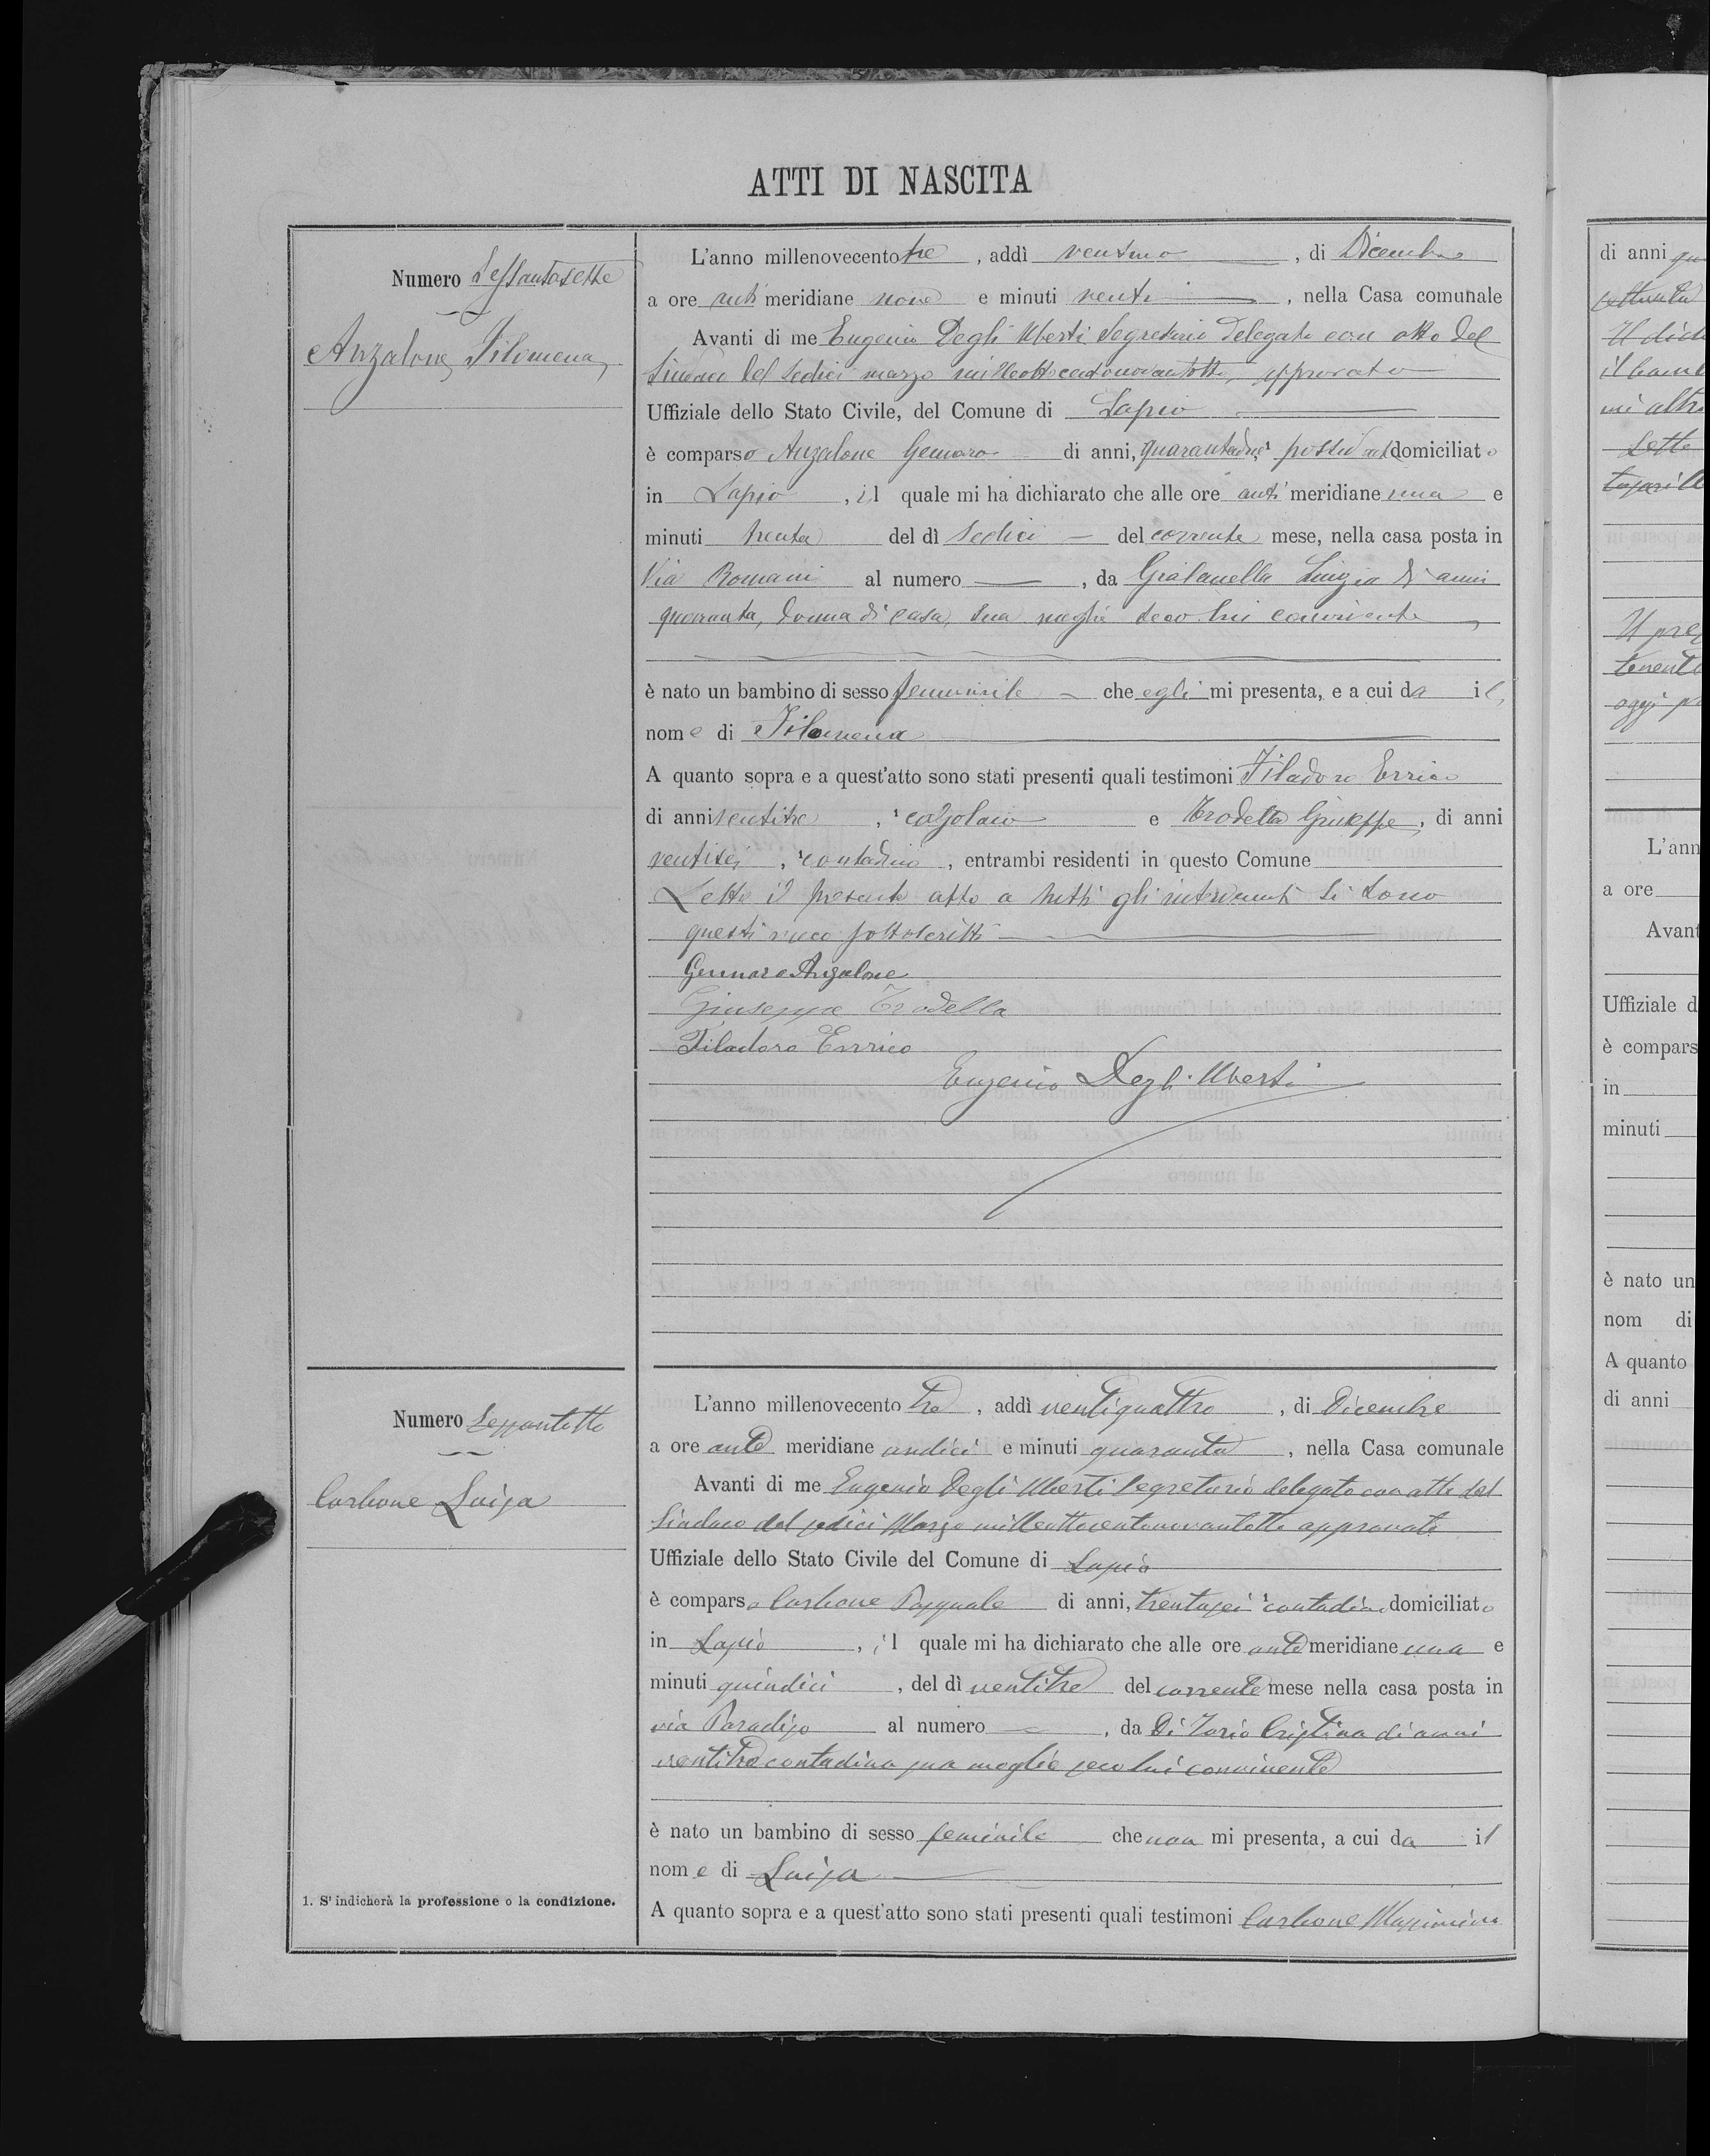 ATTI DI NASCITA
Numero Sessantasette
Anzalone Filomena
L'anno millenovecentotre, addì ventuno, di Dicembre
a ore anti meridiane nove e minuti venti, nella Casa comunale
Avanti di me Eugenio Degli Uberti Segretario delegato con atto del
Sindaco del sedici marzo milleottocentonovantotto, approvato
Uffiziale dello Stato Civile, del Comune di Lapio
è comparso Anzalone Gennaro di anni, quarantadue domiciliato
in Lapio, il quale mi ha dichiarato che alle ore anti meridiane una e
minuti trenta del dì sedici del corrente mese, nella casa posta in
Via Romani al numero, da Luigia di anni
quaranta, donna di casa, sua moglie seco lui convivente
è nato un bambino di sesso femminile che egli mi presenta, e a cui da il
nome di Filomena
A quanto sopra e a quest'atto sono stati presenti quali testimoni Filadoro Errico
di anni ventitre, calzolaio e Trodella Giuseppe, di anni
ventisei, contadino, entrambi residenti in questo Comune
Letto il presente atto a tutti gli intervenuti si sono
questi meco sottoscritti
Gennaro Anzalone
Giuseppe Trodella
Filadoro Errico
Eugenio Degli Uberti
Numero Sessantotto
Carbone Luisa
L'anno millenovecento tre, addì ventiquattro, di Dicembre
a ore ante meridiane undici e minuti quaranta, nella Casa comunale
Avanti di me Eugenio Degli Uberti Segretario delegato con atto del
Sindaco del sedici Marzo milleottocentonovantotto approvato
Uffiziale dello Stato Civile del Comune di Lapio
è comparso Carbone Pasquale di anni, trentasei contadino domiciliato
in Lapio, il quale mi ha dichiarato che alle ore ante meridiane una e
minuti quindici, del dì ventitre del corrente mese nella casa posta in
via Paradiso al numero, da Di Iorio Cristina di anni
ventitre contadina sua moglie seco lui convivente
è nato un bambino di sesso feminile che non mi presenta, a cui da il
nome di Luisa
1. S'indicherà la professione o la condizione.
A quanto sopra e a quest'atto sono stati presenti quali testimoni Carbone
di anni
il
mi
Sette
L'ann
a ore
Avant
Uffiziale d
è compars
in
minuti
è nato un
nom di
A quanto
di anni